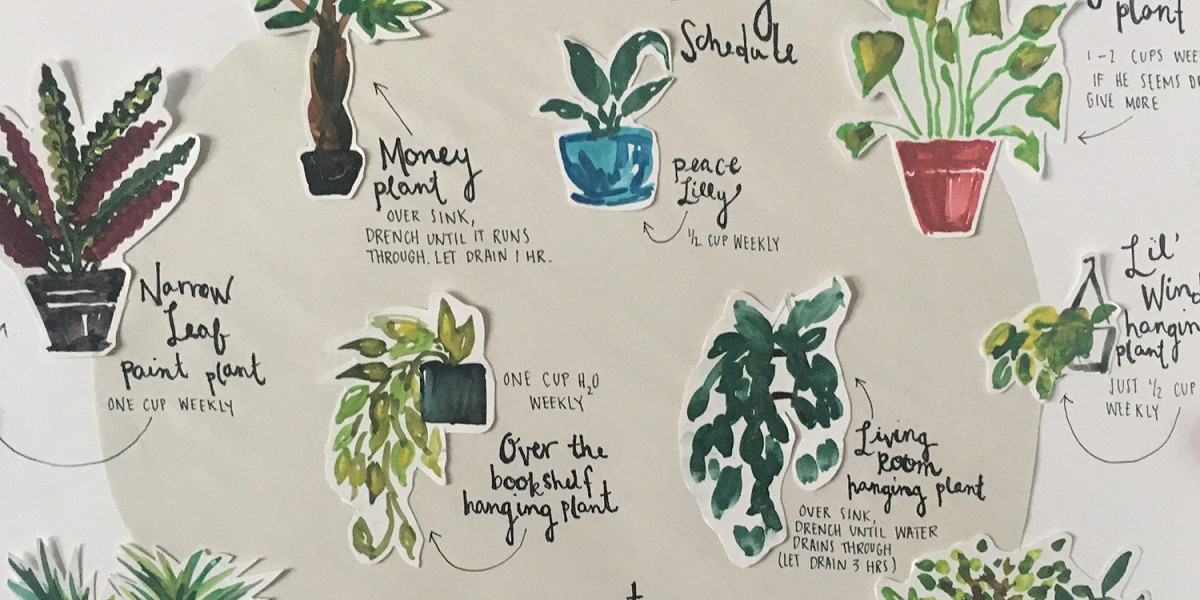 Schedule
plant
1-2 CUPS
IF HE SEEMS
GIVE MORE
Money
plant
OVER SINK,
DRENCH UNTIL IT RUNS
THROUGH. LET DRAIN 1 HR.
peace
Lilly
1/2 CUP WEEKLY
Narrow
Leaf
paint plant
ONE CUP WEEKLY
Lil'
hanging
plant
JUST 1/2 CUP
WEEKLY
ONE CUP H2O
WEEKLY
Over the
bookshelf
hanging plant
Living
Room
hanging plant
OVER SINK,
DRENCH UNTIL WATER
DRAINS THROUGH
(LET DRAIN 3 HRS)